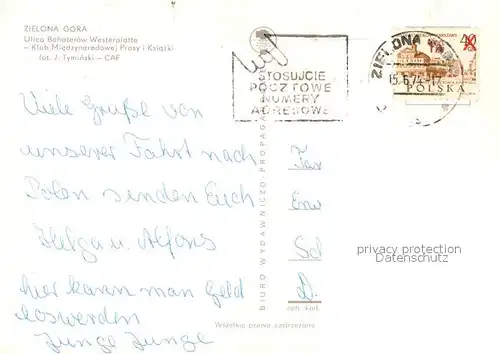 ZIELONA GÓRA
Ulica Bohaterów Westerplatte
– Klub Międzynarodowej Prasy i Książki
fot. J. Tymiński – CAF
STOSUJCIE
POCZTOWE
NUMERY
ADRESOWE
ZIELONA
15.6.74-17
40
POLSKA
Viele Grüße von
unserer Fahrt nach
Polen senden Euch
Helga u. Alfons
hier kann man Geld
loswerden
Junge Junge
BIURO WYDAWNICZO-PROPAG
Fa
Erw
Sch
D.
privacy protection
Datenschutz
Wszelkie prawa zastrzeżone